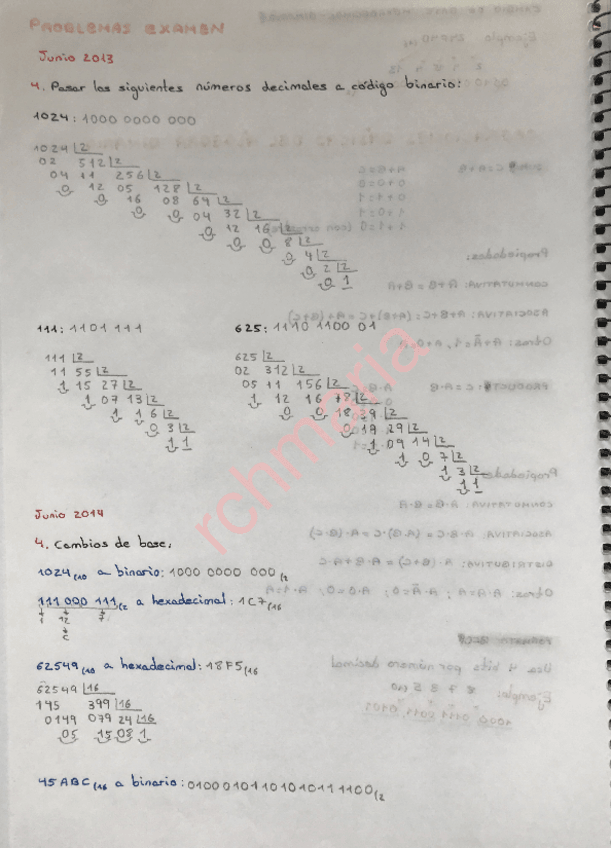 PROBLEMAS EXAMEN
Junio 2013
4. Pasar los siguientes números decimales a código binario:
1024: 1000 0000 000
1024 |2
02 512 |2
04 11 256 |2
0 12 05 128 |2
0 16 08 64 |2
0 0 04 32 |2
0 12 16 |2
0 0 8 |2
0 4 |2
0 2 |2
0 1
111: 1101 111 625: 1110 1100 01
111 |2 625 |2
11 55 |2 02 312 |2
1 15 27 |2 05 11 156 |2
1 07 13 |2 1 12 16 78 |2
1 1 6 |2 0 0 18 39 |2
0 3 |2 0 19 29 |2
1 1 1 09 14 |2
1 0 7 |2
1 3 |2
1 1
rchmaria
Junio 2014
4. Cambios de base:
1024(10 a binario: 1000 0000 000(2
111 000 111(2 a hexadecimal: 1C7(16
1 12 7
C
62549(10 a hexadecimal: 18F5(16
62549 |16
145 399 |16
0149 079 24 |16
05 15 08 1
45ABC(16 a binario: 01000101101010111100(2